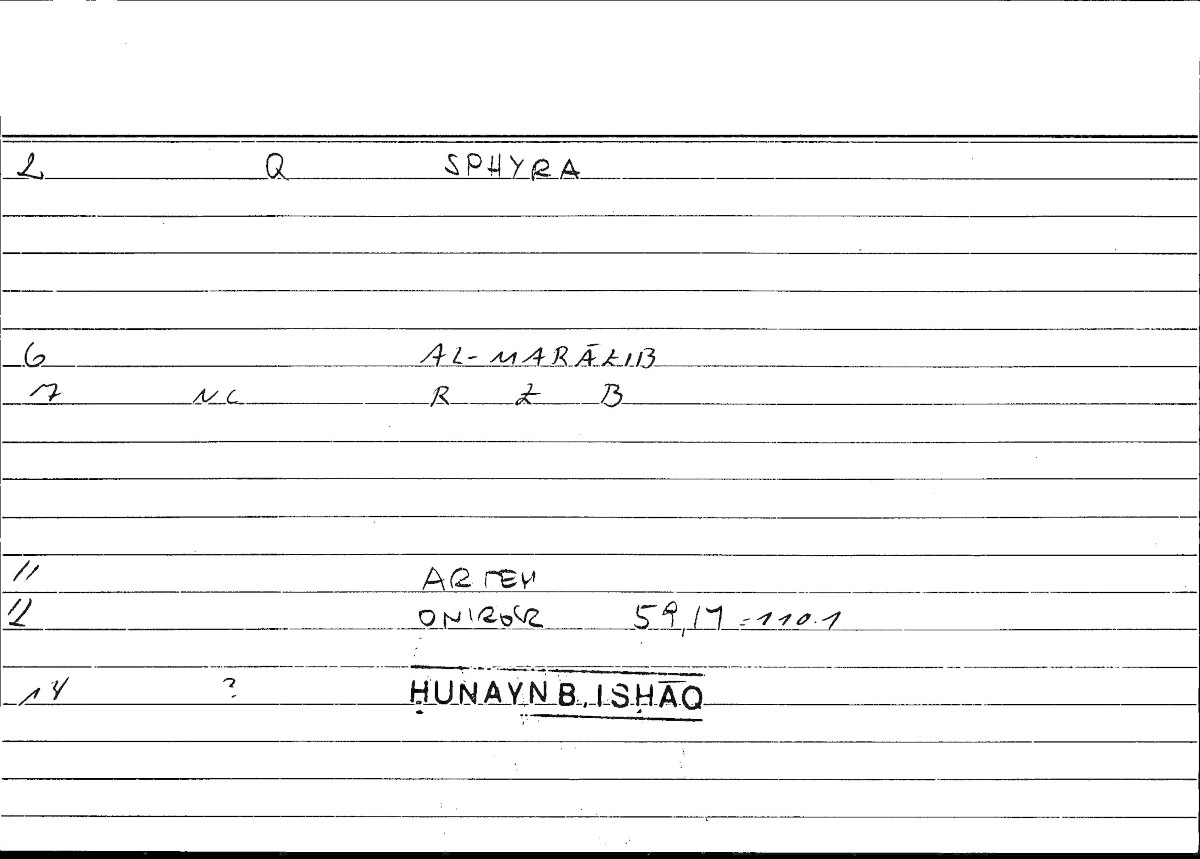 2 Q SPHYRA
6 AL-MARĀZIB
7 NC R Z B
11 ARTEM
12 ONIROCR 59,17=110.1
14 ? ḤUNAYN B. ISḤĀQ